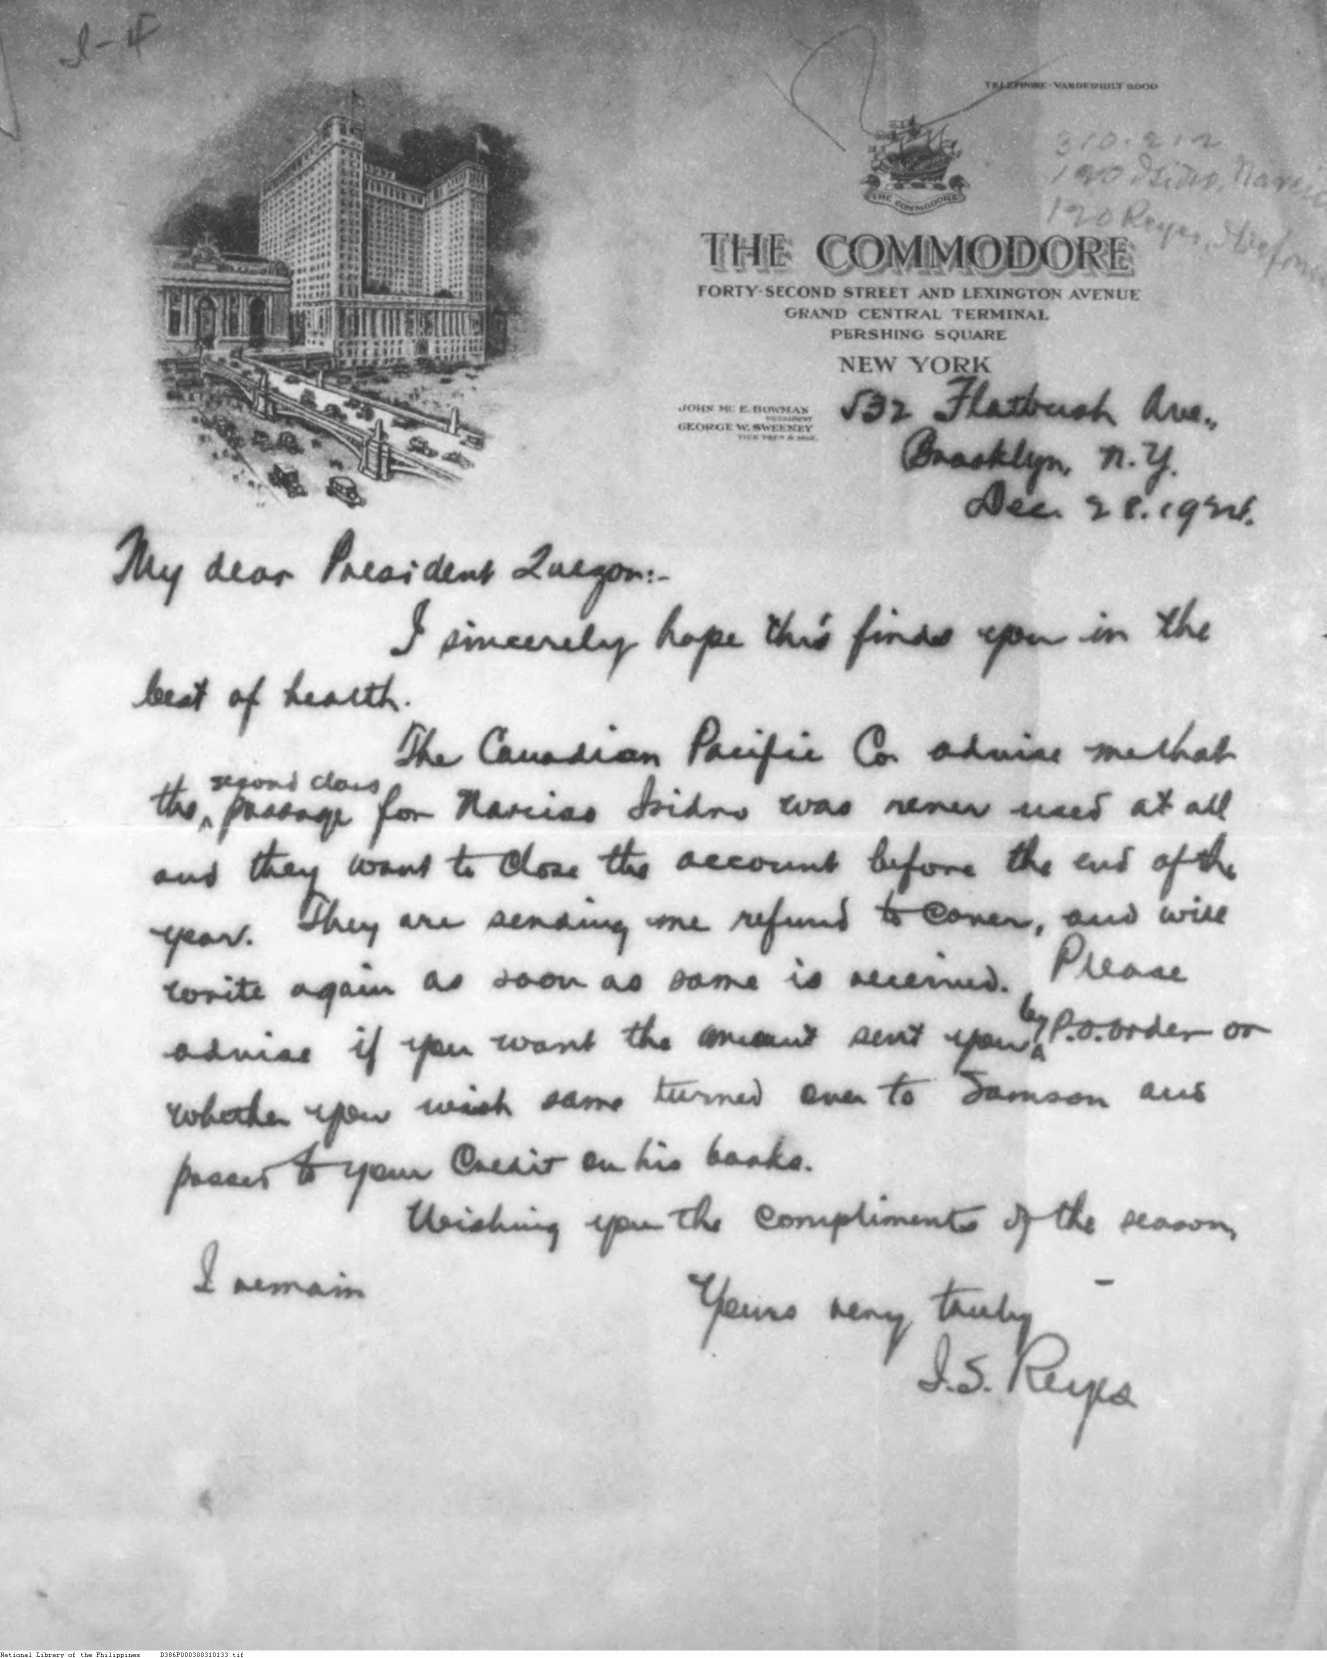 I-4
TELEPHONE-VANDERBILT 6000
310.212
190 Isidro,
190 Reyes,
THE COMMODORE
THE COMMODORE
FORTY-SECOND STREET AND LEXINGTON AVENUE
GRAND CENTRAL TERMINAL
PERSHING SQUARE
NEW YORK
JOHN MC E. BOWMAN
PRESIDENT
GEORGE W. SWEENEY
VICE PRES & MGR.
532 Flatbush Ave.,
Brooklyn, N.Y.
Dec. 28.
My dear President Quezon:-
I sincerely hope this finds you in the
best of health.
The Canadian Pacific Co. advise me that
second class
the passage for Narciso Isidro was never used at all
and they want to close the account before the end of the
year. They are sending me refund to cover, and will
write again as soon as same is received. Please
advise if you want the amount sent you by P.O. order or
whether you wish same turned over to Samson and
passed to your credit on his books.
Wishing you the compliments of the season,
I remain
Yours very truly
I.S. Reyes
National Library of the Philippines D386P000388310133.tif